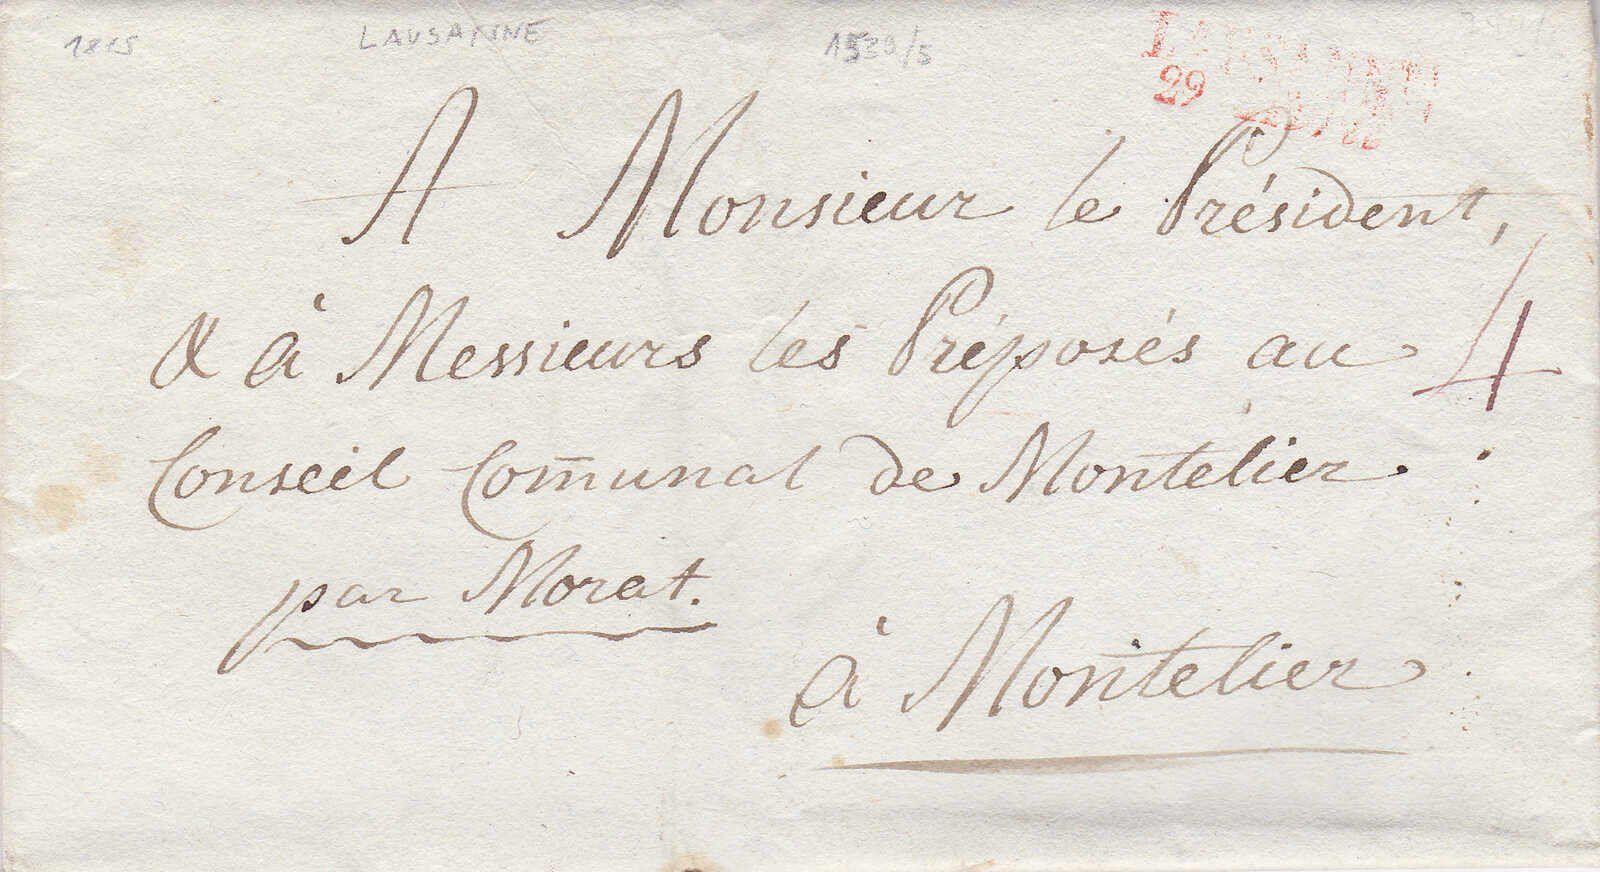 1815 LAUSANNE 1530/5
LAUSANNE
29
A Monsieur le Président,
& à Messieurs les Préposés au
4
Conseil Com̄unal de Montelier
par Morat.
à Montelier